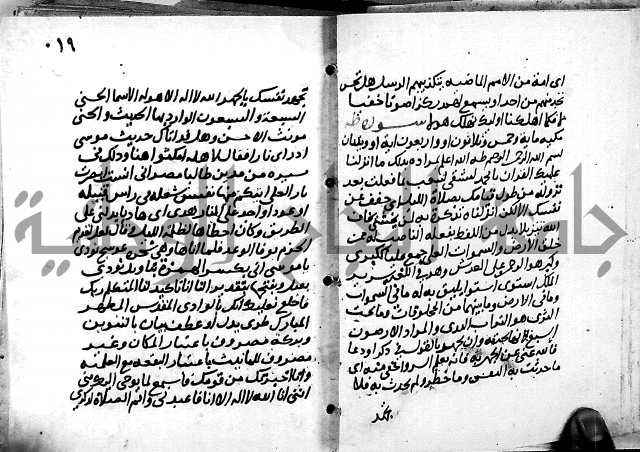 اى امة من الامم الماضيه بتكذيبهم الرسل هل تحس
تجد منهم من احد او تسمع لهم ركزا صوتا خفيا
لا فكما اهلكنا اولئك نهلك هولا سورة طه
مكيه مايه وخمس وثلاثون او واربعون اية او وثنتان
بسم الله الرحمن الرحيم طه الله اعلم بمراده بذلك ما انزلنا
عليك القران يا محمد لتشقى لتتعب بما فعلت بعد
نزوله من طول قيامك بصلاة الليل اى خفف عن
نفسك الا لكن انزلناه تذكرة به لمن يخشى يخاف
الله تنزيلا بدل من اللفظ بفعله الناصب له ممن
خلق الارض والسموات العلى جمع عليا ككبرى
وكبر هو الرحمن على العرش وهو فى اللغة سرير
الملك استوى استوا يليق به له ما فى السموات
وما فى الارض وما بينهما من المخلوقات وما تحت
الثرى هو التراب الندى والمراد الارضون
السبع لانها تحته وان تجهر بالقول فى ذكر او دعا
فالله غنى عن الجهر به فانه يعلم السر واخفى منه اى
ما حدثت به النفس وما خطر ولم تحدث به فلا
تجهد
٠١٩
تجهد نفسك بالجهر الله لا اله الا هو له الاسما الحسنى
التسعة والتسعون الوارد بها الحديث والحسنى
مونث الاحسن وهل قد اتاك حديث موسى
اذ راى نارا فقال لاهله امكثوا هنا وذلك فى
مسيره من مدين طالبا مصر انى انست ابصرت
نارا لعلى اتيكم منها بقبس شعلة فى راس فتيلة
او عود او اجد على النار هدى اى هاديا يدلنى على
الطريق وكان اخطاها لظلمة الليل وقال لعل لعدم
الجزم بوفا الوعد فلما اتاها وهى شجرة عوسج نودى
يا موسى انى بكسر الهمزة بتاويل نودى
بقيل وبفتحها بتقدير البا انا تاكيد ليا المتكلم ربك
فاخلع نعليك انك بالوادى المقدس المطهر
المبارك طوى بدل او عطف بيان بالتنوين
وتركه مصروف باعتبار المكان وغير
مصروف للتانيث باعتبار البقعة مع العلمية
وانا اخترتك من قومك فاستمع لما يوحى اليك منى
اننى انا الله لا اله الا انا فاعبدنى واقم الصلاة لذكرى